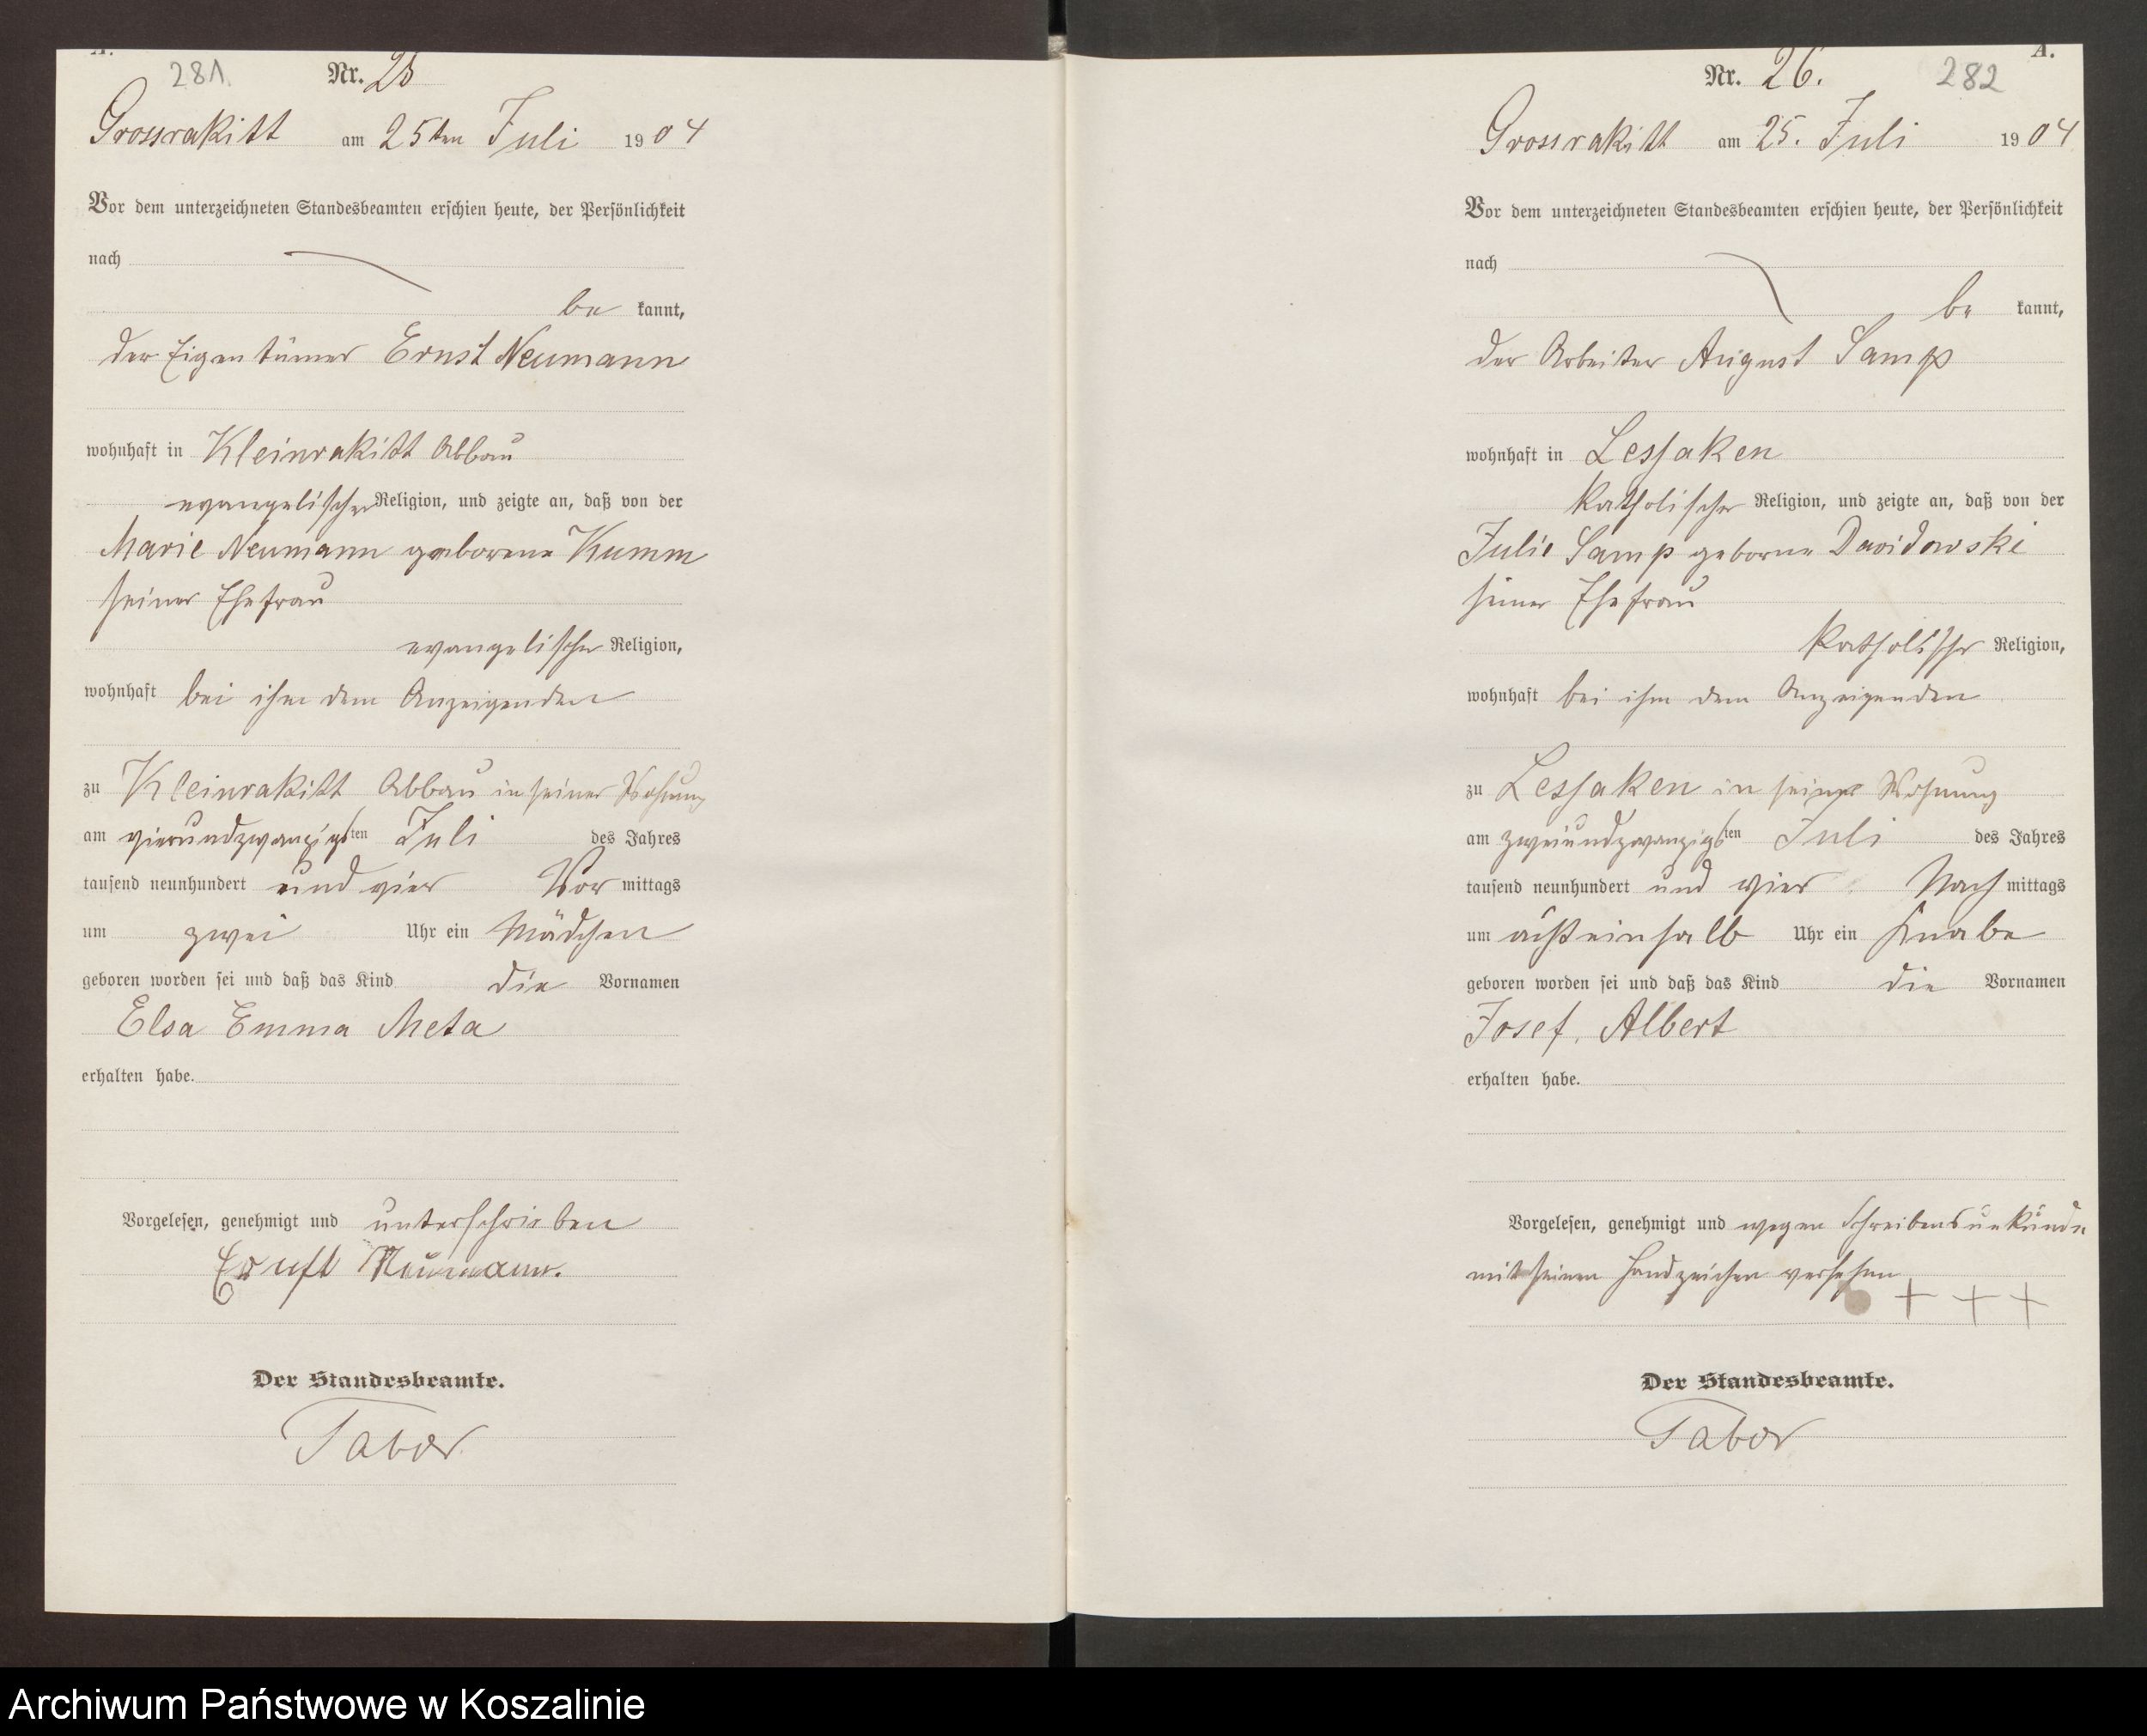 A.
281.
Nr. 25
Grossrakitt am 25ten Juli 1904
Vor dem unterzeichneten Standesbeamten erschien heute, der Persönlichkeit
nach
be kannt,
der Eigentümer Ernst Neumann
wohnhaft in Kleinrakitt Abbau
evangelischer Religion, und zeigte an, daß von der
Marie Neumann geborene Kumm
seiner Ehefrau
evangelischer Religion,
wohnhaft bei ihm dem Anzeigenden
zu Kleinrakitt Abbau in seiner Wohnung
am vierundzwanzigsten Juli des Jahres
tausend neunhundert und vier Vor mittags
um zwei Uhr ein Mädchen
geboren worden sei und daß das Kind die Vornamen
Elsa Emma Meta
erhalten habe.
Vorgelesen, genehmigt und unterschrieben
Ernst Neumann.
Der Standesbeamte.
Tabor
A.
Nr. 26.
282
Grossrakitt am 25. Juli 1904
Vor dem unterzeichneten Standesbeamten erschien heute, der Persönlichkeit
nach
be kannt,
der Arbeiter August Samp
wohnhaft in Lessaken
katholischer Religion, und zeigte an, daß von der
Julie Samp geborne Davidowski
seiner Ehefrau
katholischer Religion,
wohnhaft bei ihm dem Anzeigenden
zu Lessaken in seiner Wohnung
am zweiundzwanzigsten Juli des Jahres
tausend neunhundert und vier Nach mittags
um achteinhalb Uhr ein Knabe
geboren worden sei und daß das Kind die Vornamen
Josef, Albert
erhalten habe.
Vorgelesen, genehmigt und wegen Schreibensunkunde
mit seinen Handzeichen versehen
+ + +
Der Standesbeamte.
Tabor
Archiwum Państwowe w Koszalinie